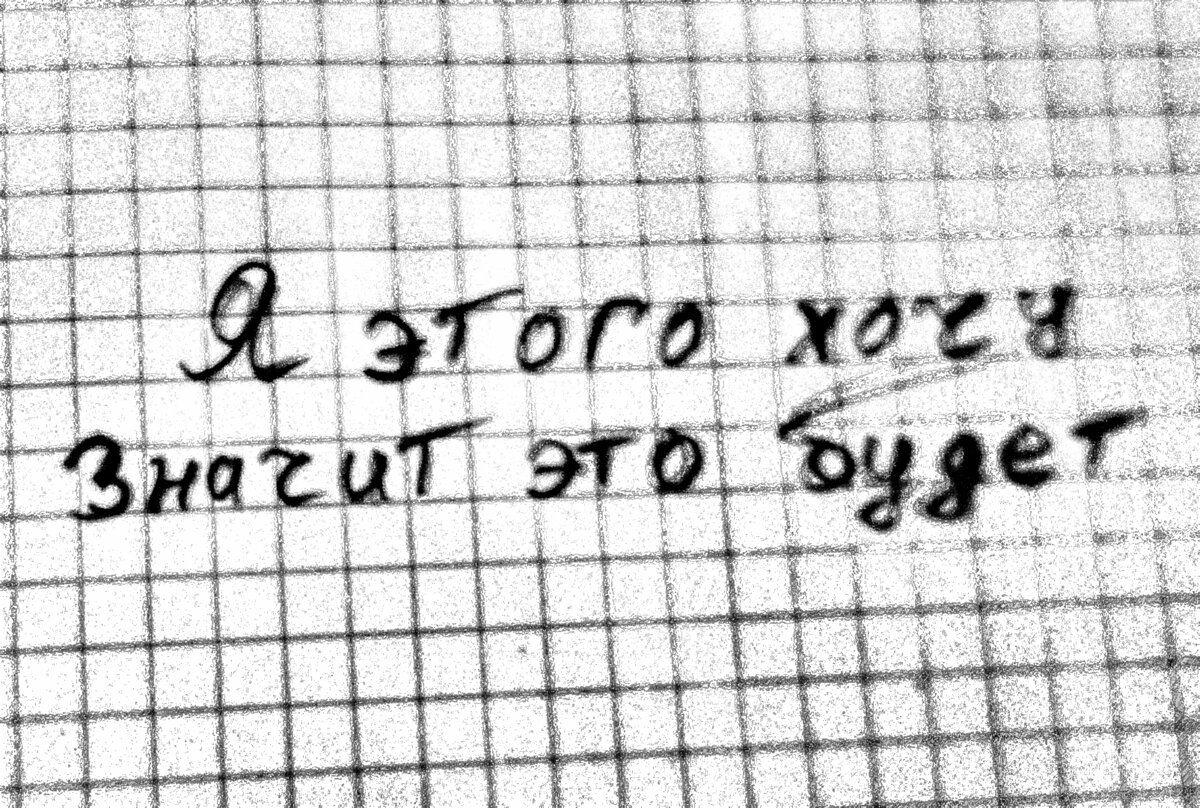 Я этого хочу
Значит это будет